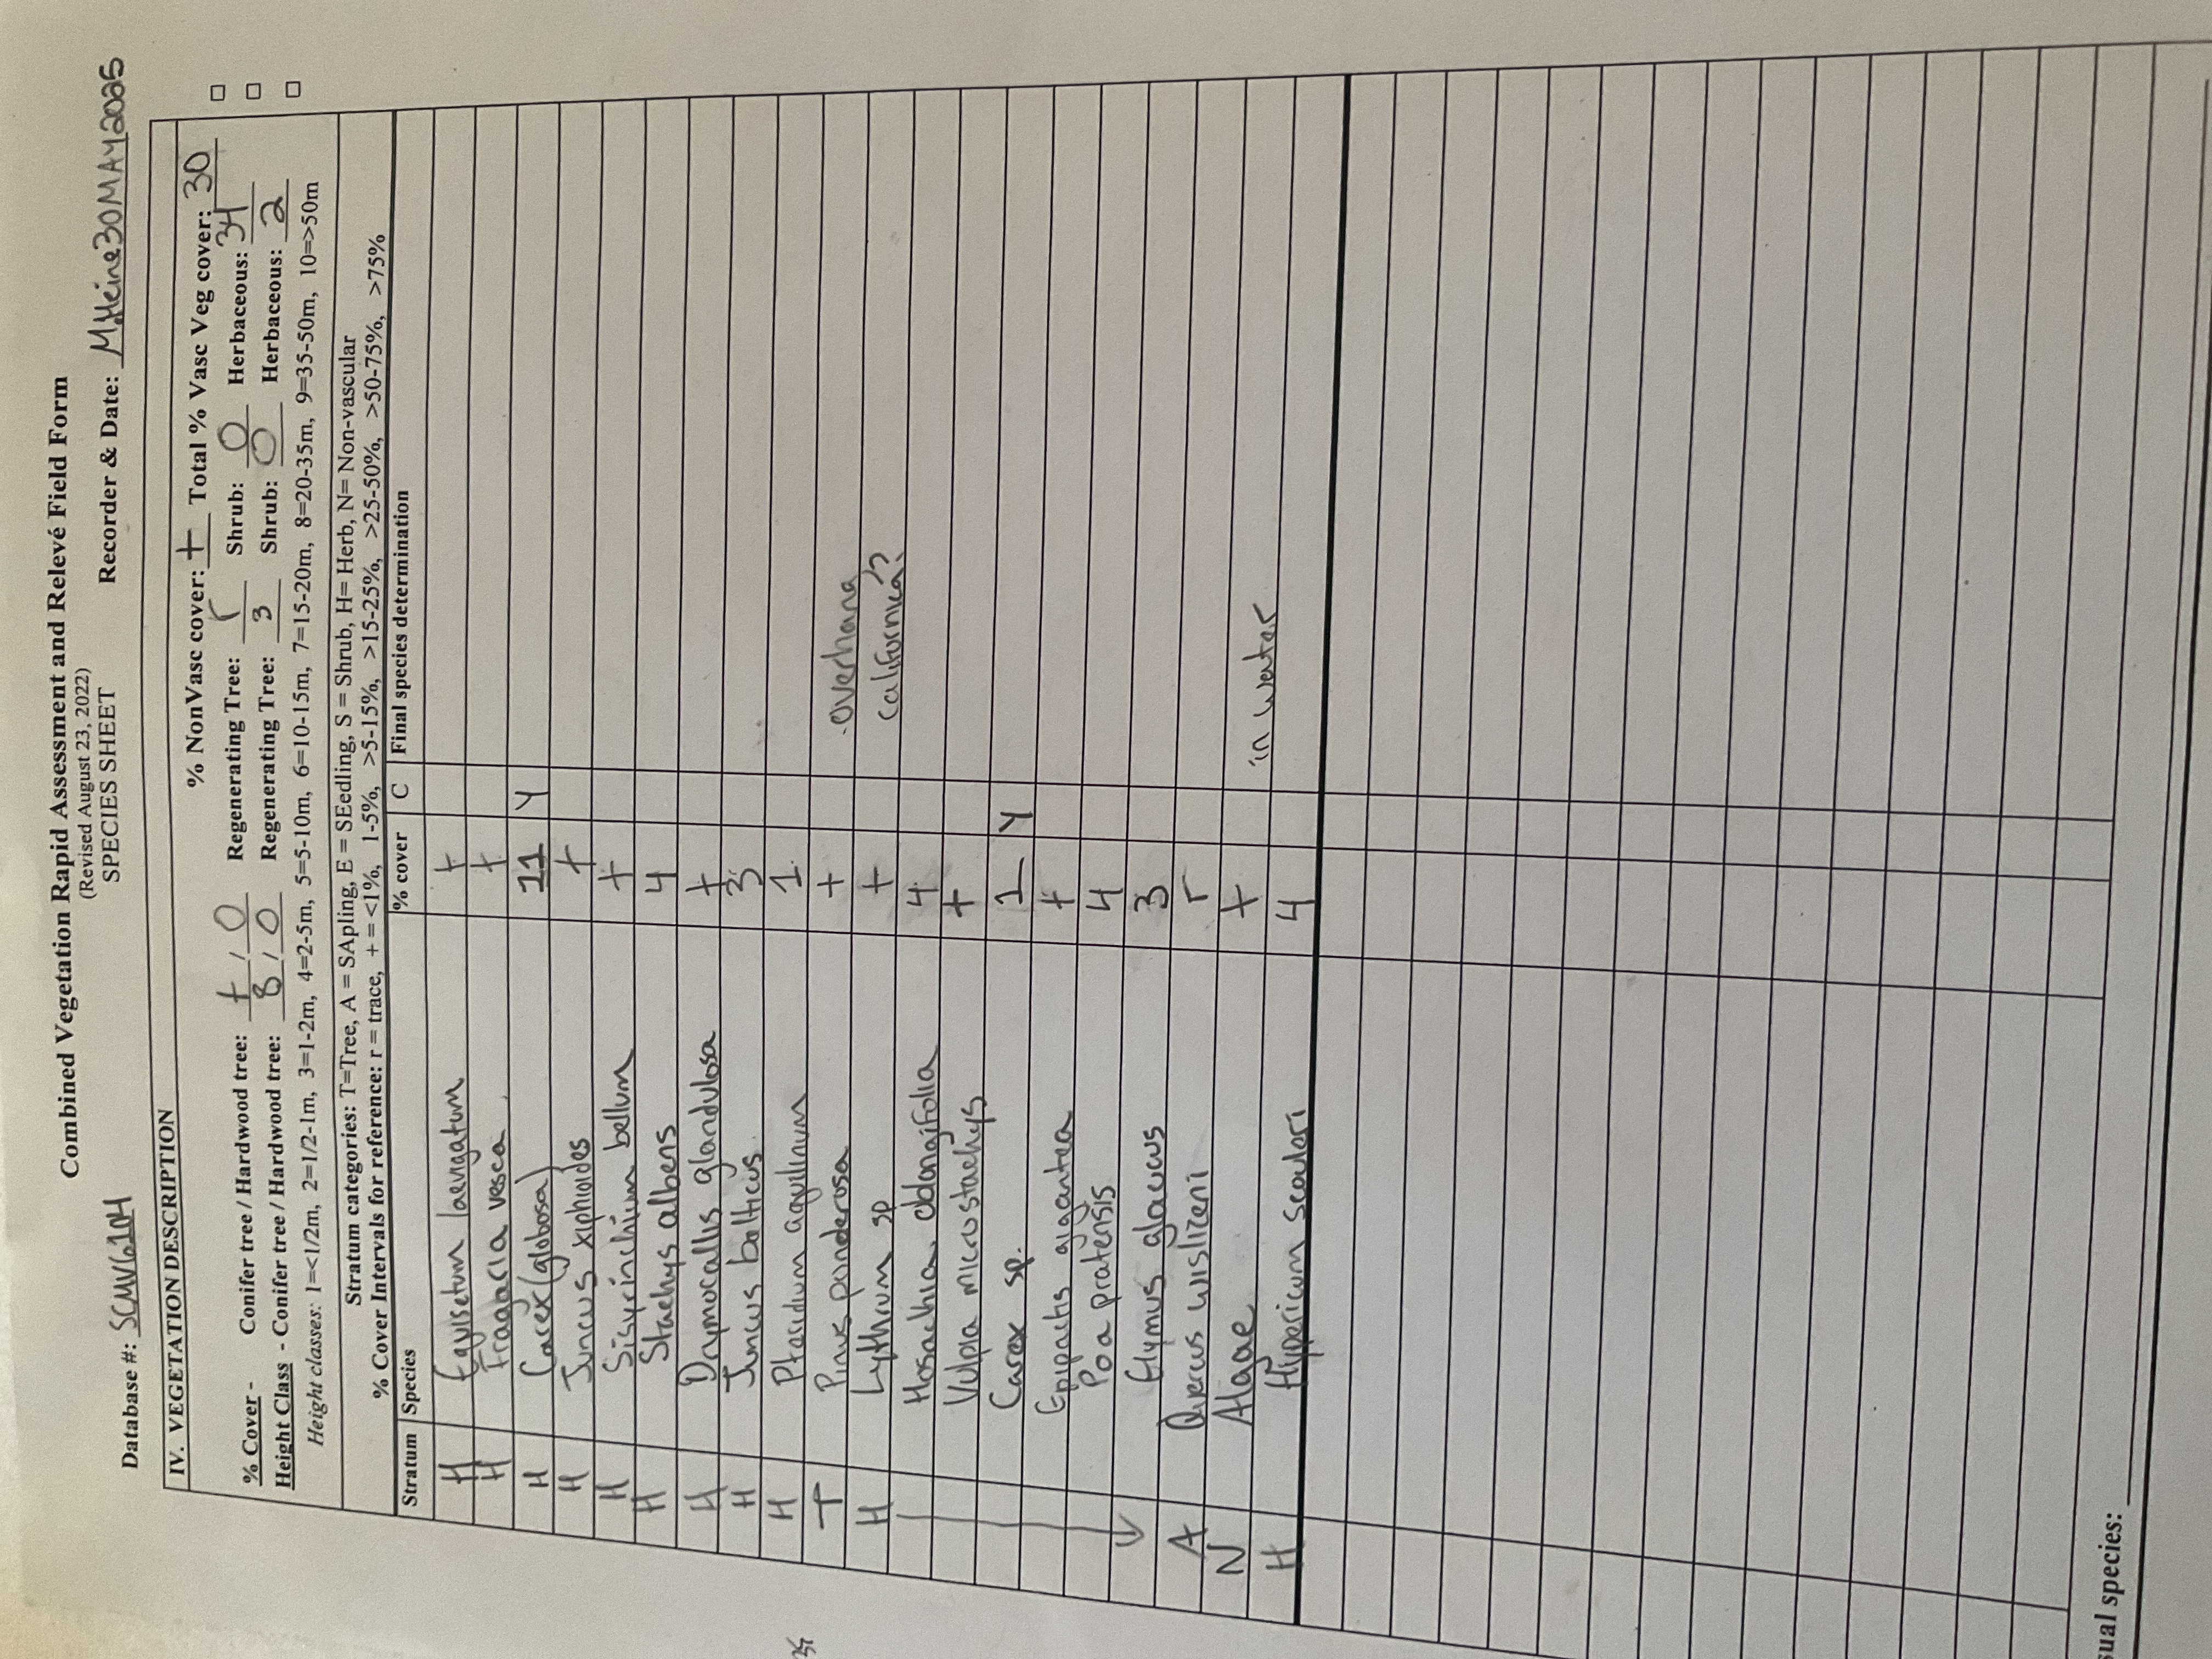 Combined Vegetation Rapid Assessment and Relevé Field Form
(Revised August 23, 2022)
SPECIES SHEET
Database #: SCMV6104 Recorder & Date: M.Heine30MAY2025
IV. VEGETATION DESCRIPTION
% NonVasc cover: + Total % Vasc Veg cover: 30
% Cover - Conifer tree / Hardwood tree: + / 0 Regenerating Tree: r Shrub: 0 Herbaceous: 34
Height Class - Conifer tree / Hardwood tree: 8 / 0 Regenerating Tree: 3 Shrub: 0 Herbaceous: 2
Height classes: 1=<1/2m, 2=1/2-1m, 3=1-2m, 4=2-5m, 5=5-10m, 6=10-15m, 7=15-20m, 8=20-35m, 9=35-50m, 10=>50m
Stratum categories: T=Tree, A = SApling, E = SEedling, S = Shrub, H= Herb, N= Non-vascular
% Cover Intervals for reference: r = trace, + = <1%, 1-5%, >5-15%, >15-25%, >25-50%, >50-75%, >75%
Stratum Species % cover C Final species determination
H Equisetum laevigatum +
H Fragaria vesca +
H Carex (globosa) 11 Y
H Juncus xiphioides +
H Sisyrinchium bellum +
H Stachys albens 4
H Drymocallis glandulosa +
H Juncus balticus 3
H Pteridium aquilinum 1
T Pinus ponderosa + overhang
H Lythrum sp + californica??
Hosackia oblongifolia 4
Vulpia microstachys +
Carex sp. 1 Y
Epipactis gigantea +
Poa pratensis 4
Elymus glaucus 3
A Quercus wislizeni r
N Algae + in water
H Hypericum scouleri 4
sual species: